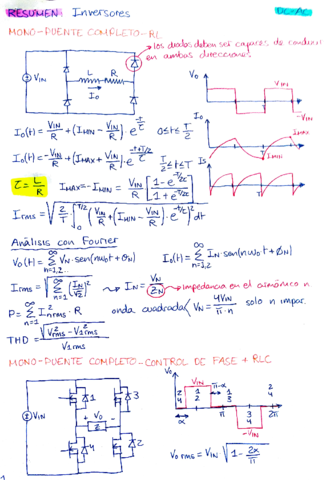 RESUMEN Inversores DC-AC
MONO-PUENTE COMPLETO-RL
los diodos deben ser capaces de conducir
en ambas direcciones.
VIN
L R
Io
Vo
VIN
-VIN
T
Io
IMAX
IMIN
Is
T
Io(t) = VIN/R + (IMIN - VIN/R) · e^(-t/τ) 0≤t≤T/2
Io(t) = -VIN/R + (IMAX + VIN/R) · e^(-t+T/2/τ) T/2≤t≤T
τ = L/R IMAX = -IMIN = VIN/R [1-e^(-T/2τ) / 1+e^(-T/2τ)]
Irms = √(2/T ∫0^(T/2) (VIN/R + (IMIN - VIN/R) · e^(-t/τ))² dt
Análisis con Fourier
Vo(t) = ∞Σn=1,2... VN · sen(nω0t + θN) Io(t) = ∞Σn=1,2 IN sen(nω0t + ΦN)
Irms = √(∞Σn=1 (IN/√2)²) → IN = VN/ZN → impedancia en el armónico n
P = ∞Σn=1 I²nrms · R onda cuadrada < VN = 4VIN/π·n solo n impar.
THD = √(V²rms - V²1rms) / V1rms
MONO-PUENTE COMPLETO-CONTROL DE FASE + RLC
VIN
1 3
+ Vo -
Z
4 2
Vo
VIN
π-α
2 4
1 2
1 3
3 4
2 4
α
π
2π
-VIN
Vo rms = VIN √(1 - 2α/π)